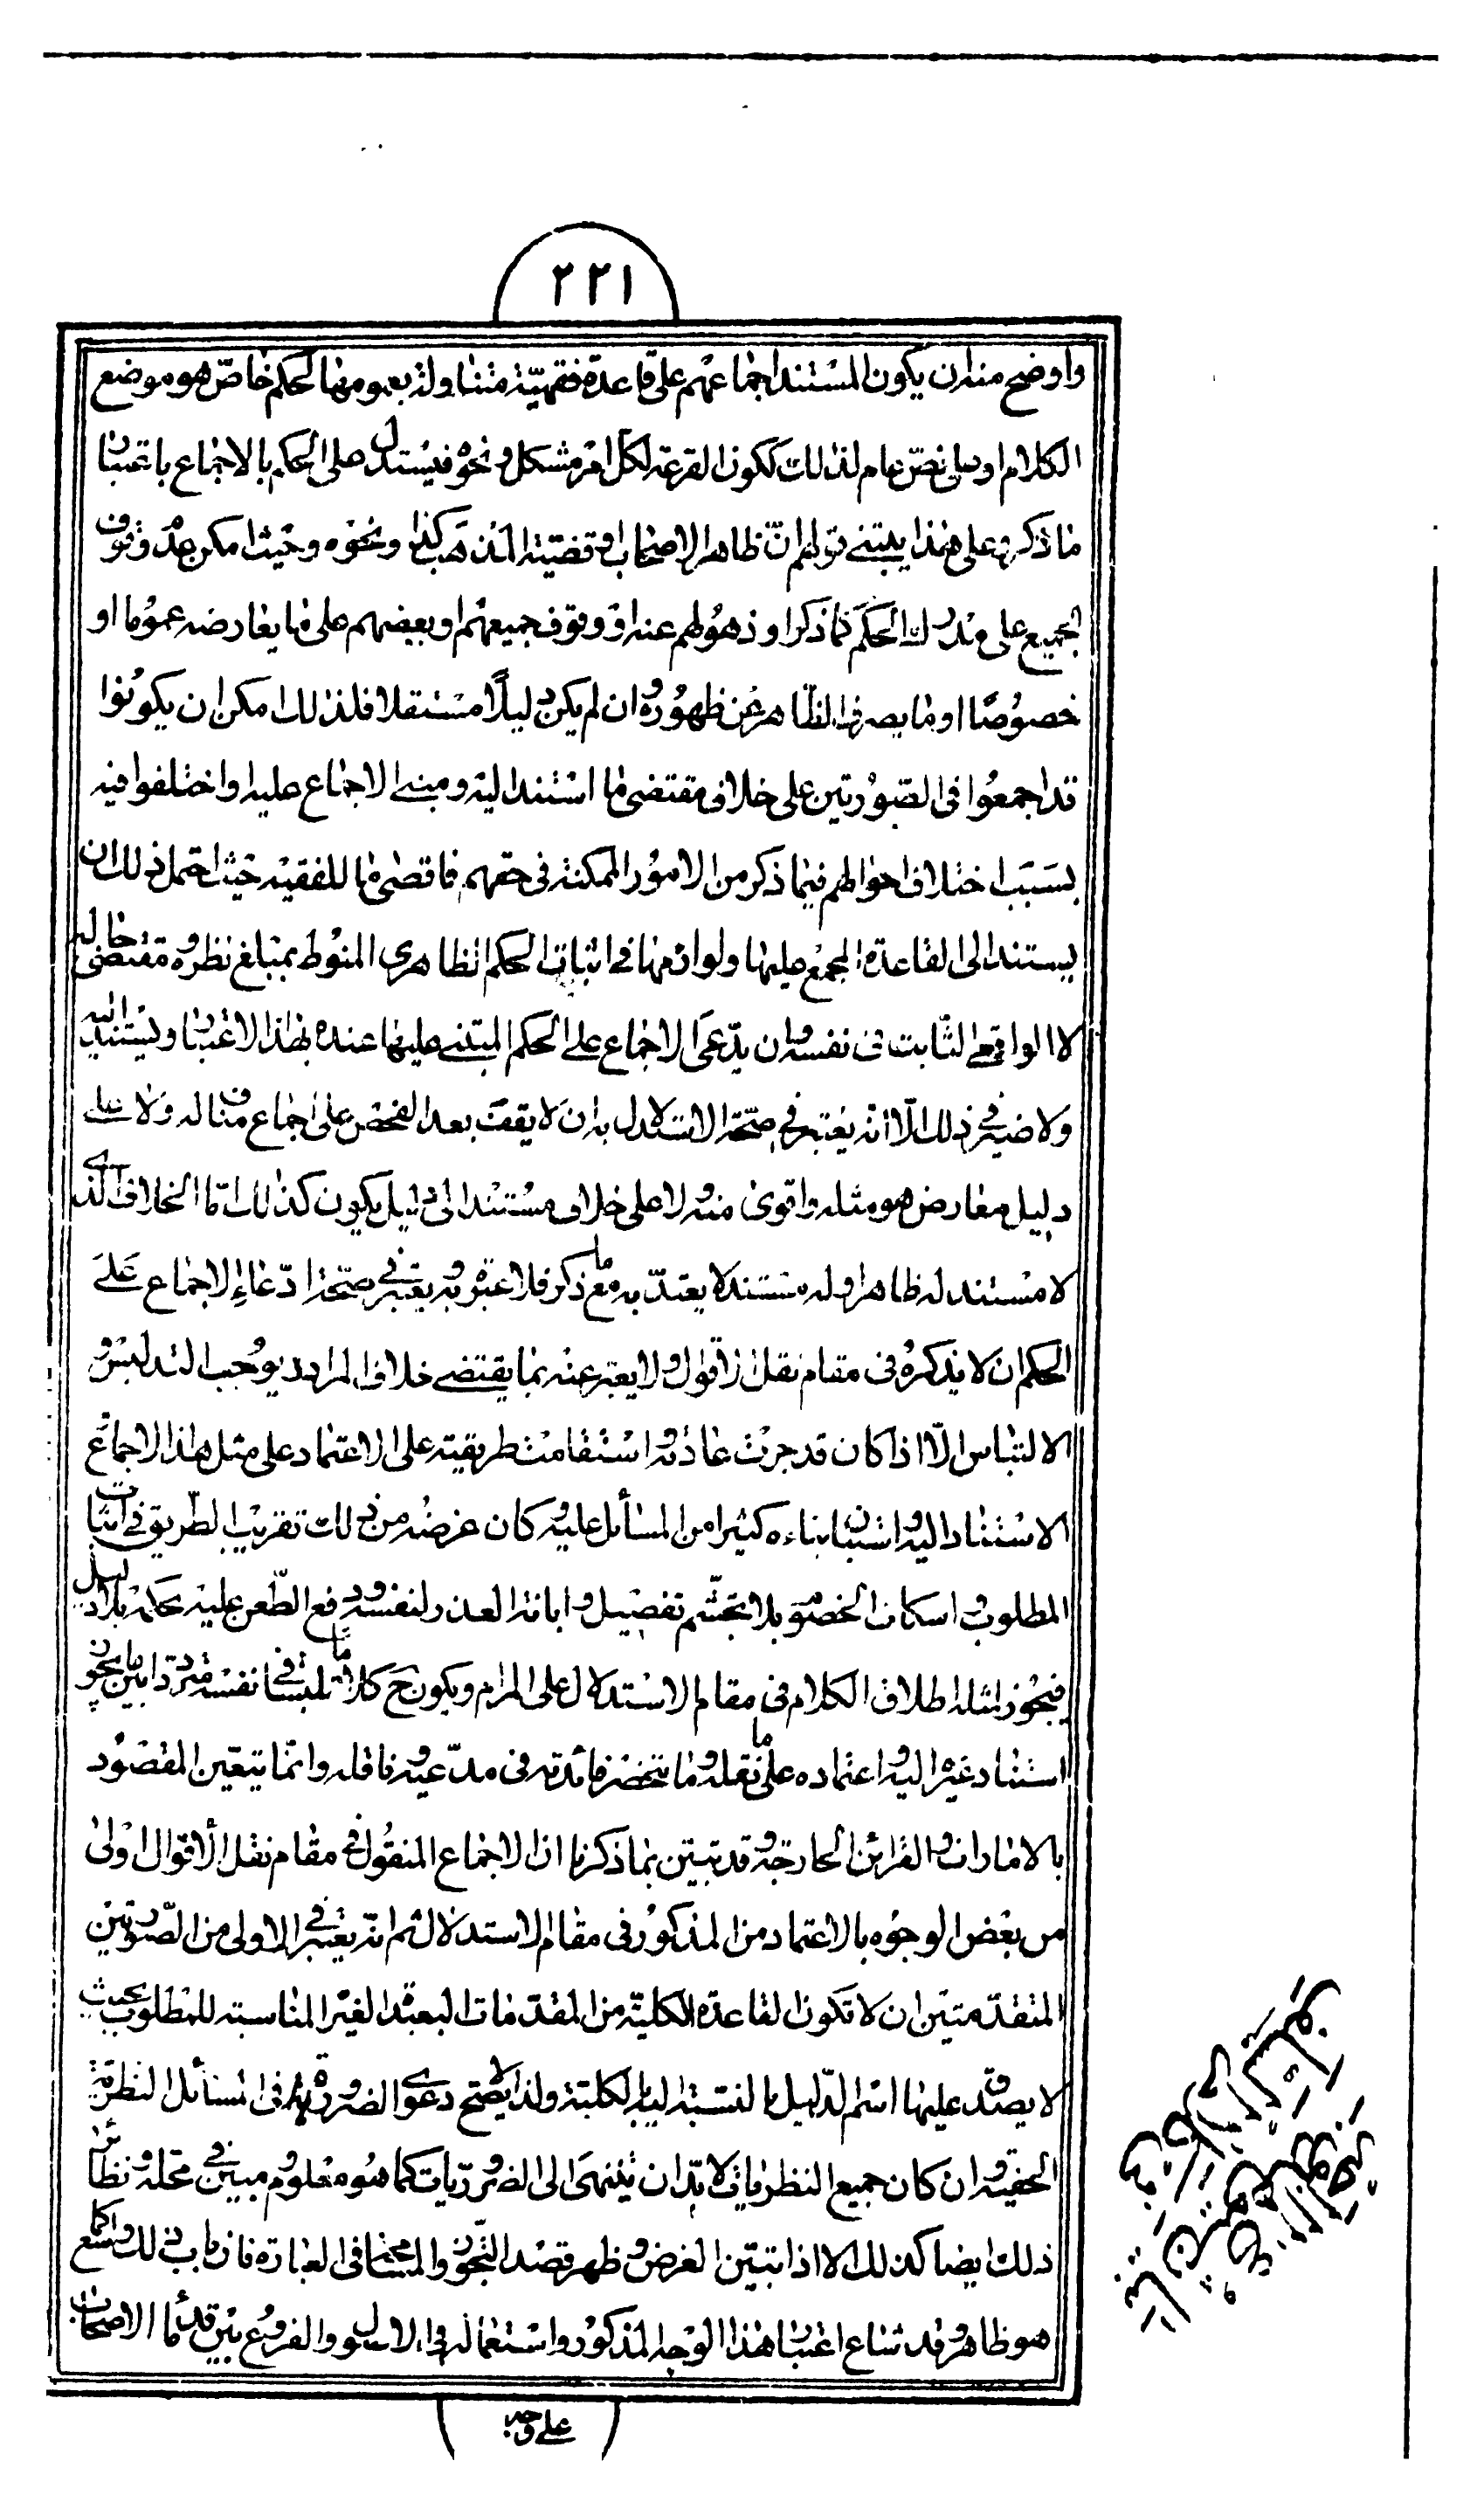 ٢٢١
واوضح منه ان يكون المستند اجماعهم على قاعدة فقهيّة متناولة بعمومها لحكم خاصّ هو موضع
الكلام او على نصّ عام لذلك ككون القرعة لكل امر مشكل ونحوه فيستدل على الحكم بالاجماع باعتبار
ما ذكر وعلى هذا يبتنى قولهم انّ ظاهر الاصحاب او قضيّة المذهب كذا ونحوه وحيث امكن عدم وقوف
الجميع على مدرك الحكم كما ذكر او ذهولهم عنه او وقوف جميعهم او بعضهم على ما يعارضه عموما او
خصوصًا او ما يصرف الظاهر عن ظهوره وان لم يكن دليلًا مستقلا فلذلك امكن ان يكونوا
قد اجمعوا فى الصّورتين على خلاف مقتضى ما استند اليه ومبنى الاجماع عليه واختلفوا فيه
بسبب اختلاف احوالهم فيما ذكر من الامور الممكنة فى حقهم فاقصى ما للفقيه حيث احتمل ذلك ان
يستند الى القاعدة المجمع عليها ولوازمها فى اثبات الحكم الظاهرى المنوط بمبلغ نظره ومقتضى حاله
لا الواقعى الثّابت فى نفسه وان يدّعى الاجماع على الحكم المبتنى عليها عنده بهذا الاعتبار ويستند اليه
ولا ضير فى ذلك الّا انه يعتبر فى صحّة الاستدلال به ان لا يقف بعد الفحص على اجماع مناف له ولا على
دليل معارض هو مثله او اقوى منه ولا على خلاف مستند الى دليل يكون كذلك امّا الخلاف الّذى
لا مستند له ظاهرا وله مستند لا يعتدّ به مع ما ذكر فلا عبرة به ويعتبر فى صحّة ادّعاء الاجماع على
الحكم ان لا يذكره فى مقام نقل الاقوال ولا يعبّر عنه بما يقتضى خلاف المراد ويوجب التدليس و
الالتباس الّا اذا كان قد جرت عادته واستقامت طريقته على الاعتماد على مثل هذا الاجماع و
الاستناد اليه واستبان ابتناءه كثيرا من المسائل عليه وكان غرضه من ذلك تقريب الطّريق فى اثبات
المطلوب واسكات الخصم بلا تجشّم تفصيل وابانة العذر لنفسه ودفع الطّعن عليه بلا دليل
فيجوز لمثله اطلاق الكلام فى مقام الاستدلال على المرام ويكون ح كلامه ملتبسا فى نفسه متردّدا بين ما يجوز
استناد غيره اليه واعتماده على ما نقله وما تختصّ فائدته فى مدّعيه وناقله وانّما يتعيّن المقصود
بالامارات والقرائن الخارجة وقد تبيّن بما ذكرنا انّ الاجماع المنقول فى مقام نقل الاقوال اولى
من بعض الوجوه بالاعتماد من المذكور فى مقام الاستدلال ثم انّه يعتبر فى الاولى من الصّورتين
المتقدّمتين ان لا تكون القاعدة الكليّة من المقدّمات البعيدة الغير المناسبة للمطلوب بحيث
لا يصدق عليها اسم الدّليل بالنسبة اليه بالكليّة ولذا لا يصّح دعوى الضرورة فى المسائل النظريّة
الخفيّة وان كان جميع النظريات لا بدّ ان ينتهى الى الضروريّات كما هو معلوم مبيّن فى محلّه ونظائر
ذلك ايضا كذلك الا اذا تبيّن الغرض وظهر قصد التّجوّز والمسامحة فى العبارة فان باب ذلك واسع كما
هو ظاهر وقد شاع اعتبار هذا الوجه المذكور واستعماله فى الاصول والفروع بين قدماء الاصحاب
على وجه